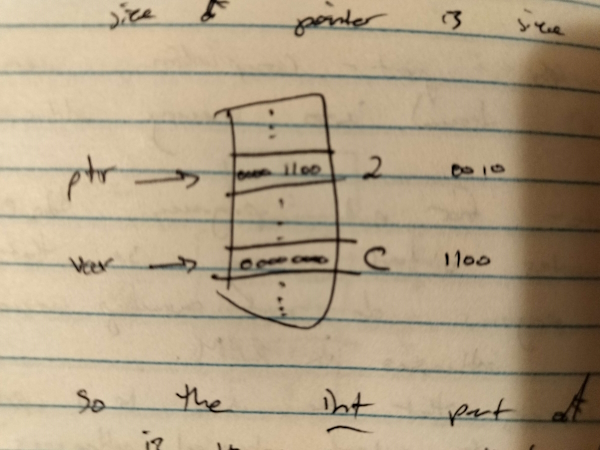 size of pointer is size
ptr → 0000 1100 2 0010
var → 0000 0000 C 1100
so the int part of
is